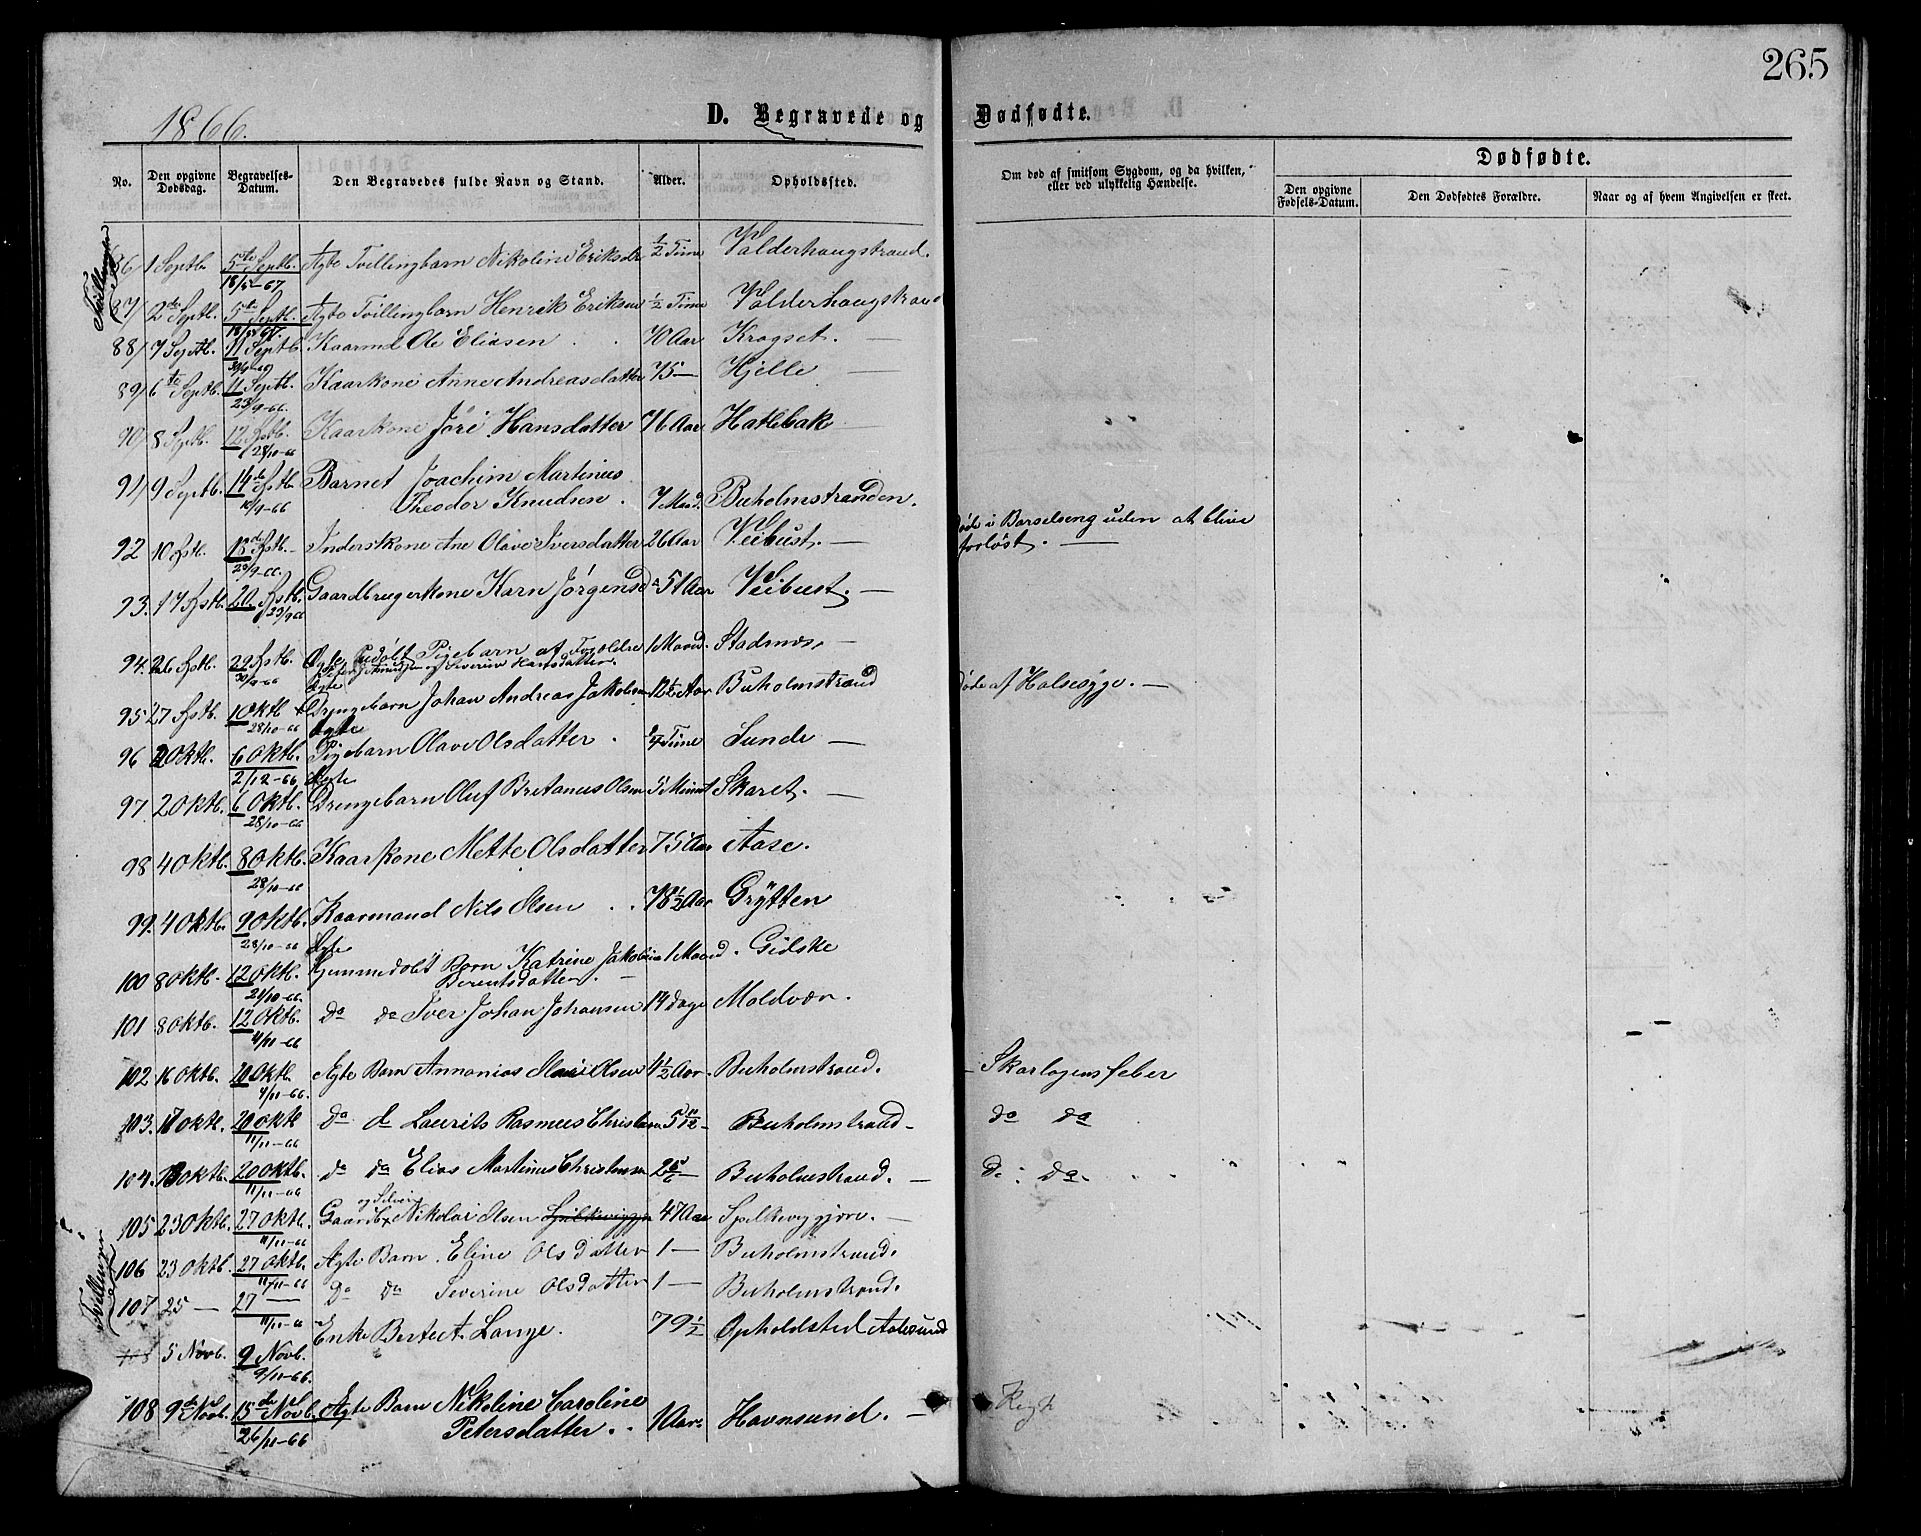 265
1866.
D. Begravede og Dødfødte.
No. Den opgivne Dødsdag. Begravelses-Datum. Den Begravedes fulde Navn og Stand. Alder. Opholdssted. Om død af smitsom Sygdom, og da hvilken, eller ved ulykkelig Hændelse. Dødfødte. Den opgivne Fødsels-Datum. Den Dødfødtes Forældre. Naar og af hvem Angivelsen er skeet.
Tvillinger
86 1 Septb. 5te Septb. Ægte Tvillingbarn Nikoline Eriksdr ½ Time Valderhaugstrand.
18/5-67
87/ 2de Septb. 5te Septb. Ægte Tvillingbarn Henrik Eriksen ½ Time Valderhaugstrand
88/ 7 Septb. 11 Septb. Kaarmd Ole Eliasen 70 Aar Krogset. —
89/ 6te Septb. 11 Septb. Kaarkone Anne Andreasdatter 75 — Hjelle —
23/9-66.
90/ 8 Septb. 12 Sptb. Kaarkone Jöri Hansdatter 76 Aar Hatlebak —
28/10-66
91/ 9 Septb. 14de Sptb. Barnet Joachim Martinus
Theodor Knudsen. 7 Maad. Buholmstranden.
92 10 Sptb. 13de Sptb. Inderstkone Ane Olave Iversdatter 26 Aar Veibust. — Død i Barselseng uden at blive
forløst. —
23/9-66.
93. 17 Sptb. 20 Sptb. Gaardbrugerkone Karn Jørgensd 51 Aar Veibust. —
23/9 66
94. 26 Sptb. 29 Sptb. Ægte Udöbt Pigebarn af Forældre 1 Maaned. Stadsnæs, —
30/9-66 Severine Hansdatter.
Ægte
95 27 Sptb. 1 Oktb Drengebarn Johan Andreas Jakobsen 12½ Aar Buholmstrand Døde af Halssyge. —
28/10-66 Ægte
96 2 Oktb. 6 Oktb. Pigebarn Olave Olsdatter Time Sunde —
2/12-66 Ægte
97. 2 Oktb. 6 Oktb. Drengebarn Oluf Bretanus Olsen 5 Minut Skaret. —
28/10-66
98 4 Oktb. 8 Oktb. Kaarkone Mette Olsdatter 75 Aar Aase.
28/10-66
99. 4 Oktb. 9 Oktb. Kaarmand Nils Olsen 78½ Aar Grÿtten
28/10-66 Ægte
100 8 Oktb. 12 Oktb. Hjemmedöbt Barn Katrine Jakobine 1 Maaned. Gidske
Berentsdatter. —
21/10-66.
101 8 Oktb. 12 Oktb. do do Iver Johan Johansen 14 Dage Moldvær.
4/11-66
102 16 Oktb. 20 Oktb. Ægte Barn Annanias Olsen 4½ Aar. Buholmstrand. — Skarlagensfeber
4/11-66.
103. 17 Oktb. 20 Oktb do d Laurits Rasmus Christensen Buholmstrand — do do
11/11-66
104. Oktb. 20 Oktb. do do Elias Martinus Christensen 2 Buholmstrand. — do do.
11/11-66 og Selveier
105 23 Oktb. 27 Oktb. Gaardb Nikolai Olsen 47 Aar Spjelkeviggjøre. —
11/11-66
Tvillinger
106 23 Oktb. 27 Oktb. Ægte Barn. Eline Olsdatter 1 — Buholmstrand.
11/11-66
107 25 — 27 — Do Do Severine Olsdatter 1 — Buholmstrand.
11/11-66
108 5 Novb. 9 Novb. Enke Berteet Lange. 79½ Opholdsted Aalesund
9/11-66.
108 9de Novb. 15de Novb. Ægte Barn Nikoline Caroline
Petersdatter. 1 Aar. Havnsund. —
26/11-66